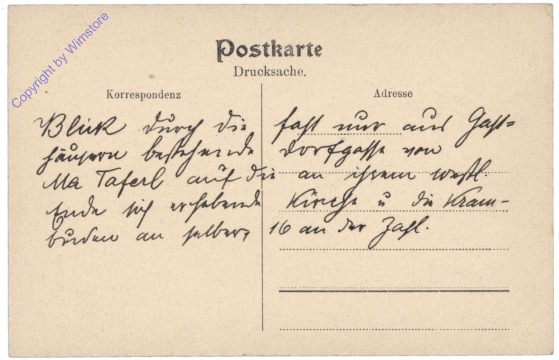 Copyright by Wimstore
Postkarte
Drucksache.
Korrespondenz
Adresse
Blick durch die fast nur aus Gast=
häusern bestehende Dorfgasse von
Ma Taferl auf die an ihrem westl.
Ende sich erhebende Kirche u die Kram-
buden an selber, 16 an der Zahl.